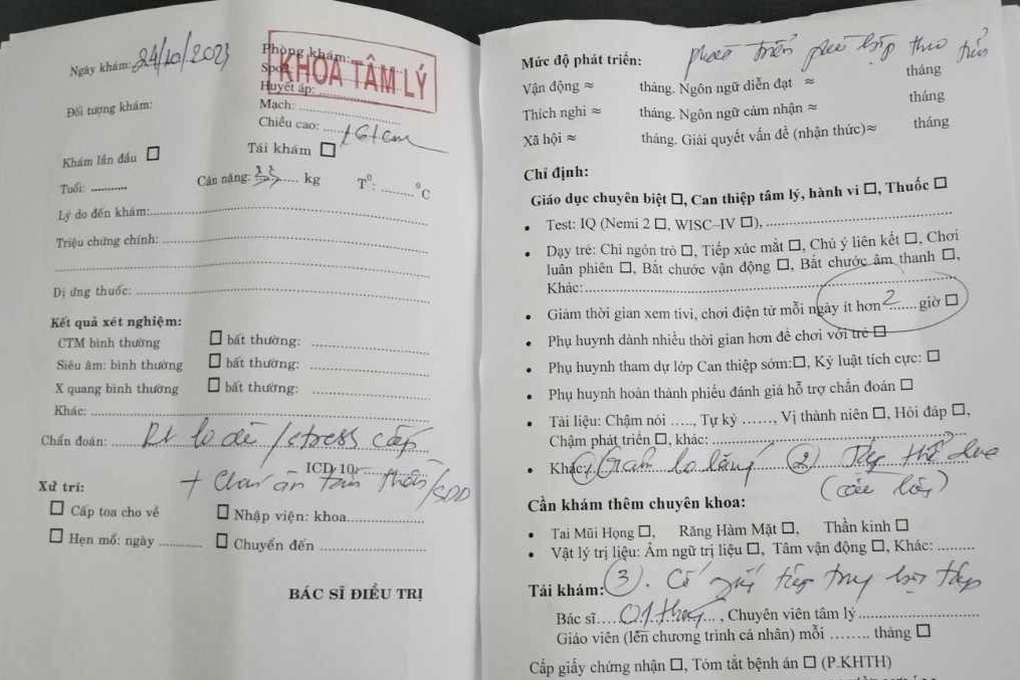 Ngày khám: 24/10/2023
Phòng khám:
KHOA TÂM LÝ
Huyết áp:
Đối tượng khám:
Mạch:
Chiều cao:
Khám lần đầu ☐
Tái khám ☐
Tuổi: ..........
Cân nặng: 33 kg
T⁰: ....... ⁰C
Lý do đến khám:
Triệu chứng chính:
Dị ứng thuốc:
Kết quả xét nghiệm:
CTM bình thường ☐ bất thường:
Siêu âm: bình thường ☐ bất thường:
X quang bình thường ☐ bất thường:
Khác:
Chẩn đoán: RL lo âu /stress cấp
ICD 10:
+ Chán ăn tâm thần/SDD
Xử trí:
☐ Cấp toa cho về ☐ Nhập viện: khoa
☐ Hẹn mổ: ngày ☐ Chuyển đến
BÁC SĨ ĐIỀU TRỊ
Mức độ phát triển: phát triển phù hợp theo tuổi
Vận động ≈ tháng. Ngôn ngữ diễn đạt ≈ tháng
Thích nghi ≈ tháng. Ngôn ngữ cảm nhận ≈ tháng
Xã hội ≈ tháng. Giải quyết vấn đề (nhận thức)≈ tháng
Chỉ định:
Giáo dục chuyên biệt ☐, Can thiệp tâm lý, hành vi ☐, Thuốc ☐
• Test: IQ (Nemi 2 ☐, WISC–IV ☐),
• Dạy trẻ: Chỉ ngón trỏ ☐, Tiếp xúc mắt ☐, Chú ý liên kết ☐, Chơi
luân phiên ☐, Bắt chước vận động ☐, Bắt chước âm thanh ☐,
Khác:
• Giảm thời gian xem tivi, chơi điện tử mỗi ngày ít hơn 2 giờ ☐
• Phụ huynh dành nhiều thời gian hơn để chơi với trẻ ☐
• Phụ huynh tham dự lớp Can thiệp sớm:☐, Kỷ luật tích cực: ☐
• Phụ huynh hoàn thành phiếu đánh giá hỗ trợ chẩn đoán ☐
• Tài liệu: Chậm nói ....., Tự kỷ ......, Vị thành niên ☐, Hỏi đáp ☐,
Chậm phát triển ☐, khác:
• Khác: 1) Giảm lo lắng 2) Tập thể dục
(cầu lông)
Cần khám thêm chuyên khoa:
• Tai Mũi Họng ☐, Răng Hàm Mặt ☐, Thần kinh ☐
• Vật lý trị liệu: Âm ngữ trị liệu ☐, Tâm vận động ☐, Khác: .........
Tái khám: 3). Cố gắng tập trung học tập
Bác sĩ.... 01 tháng..., Chuyên viên tâm lý
Giáo viên (lên chương trình cá nhân) mỗi ........ tháng ☐
Cấp giấy chứng nhận ☐, Tóm tắt bệnh án ☐ (P.KHTH)